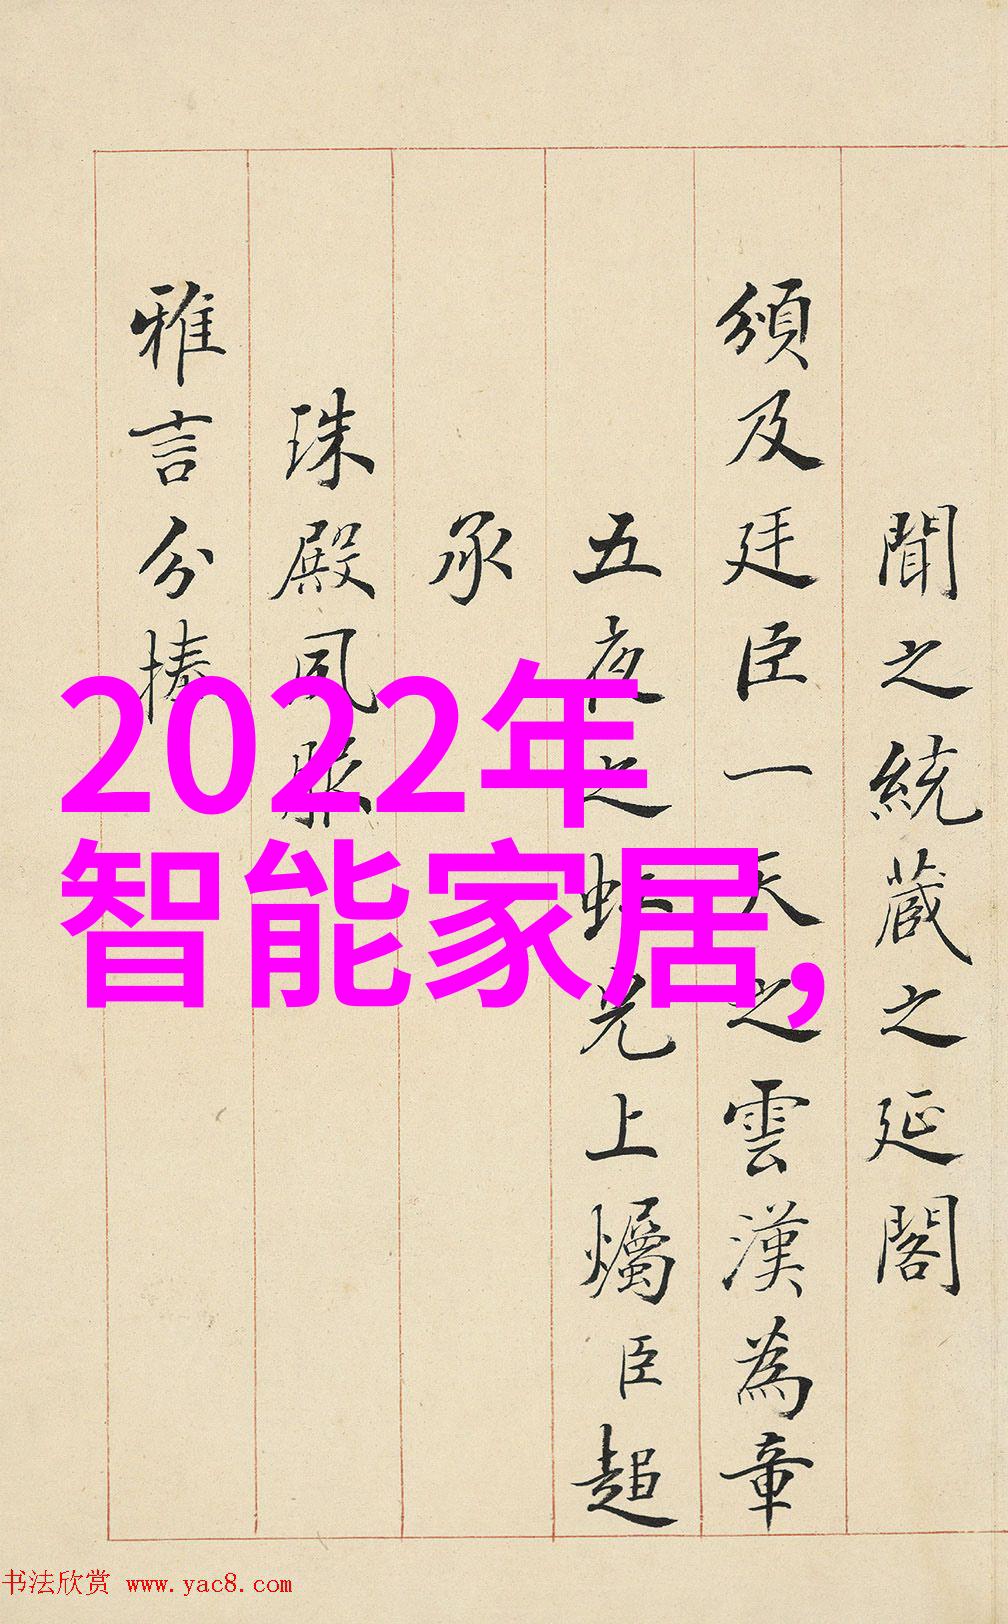 聞之統蔵之延閣
頒及廷臣一天之雲漢為章
五夜之虹光上燭臣超
承
珠殿夙脤
雅言分捧
2022年
智能家居,
书法欣赏 www.yac8.com